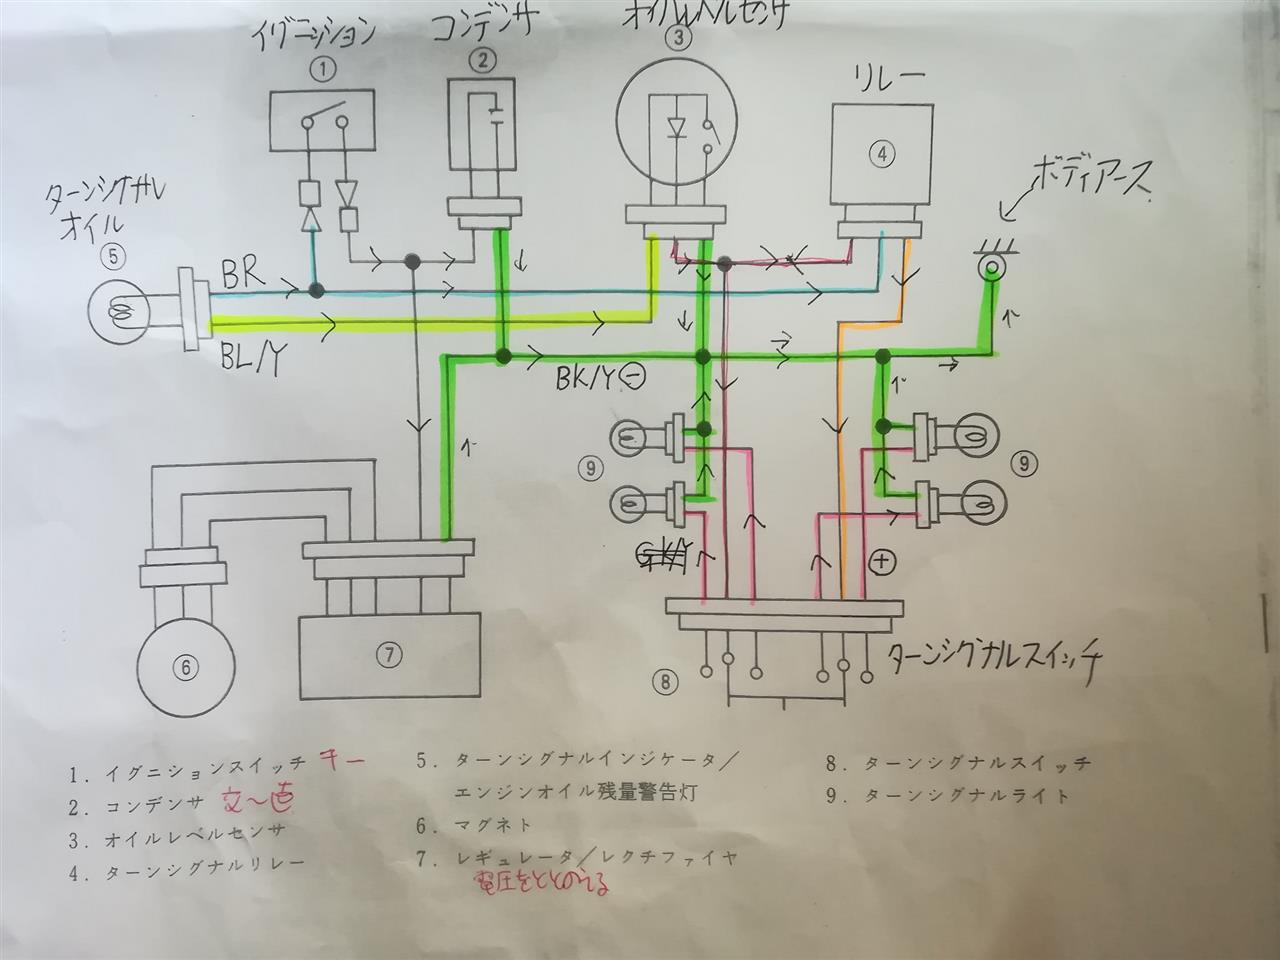 イグニッション
コンデンサ
オイルレベルセンサ
①
②
③
リレー
④
ボディアース
ターンシグナル
オイル
⑤
BR
BL/Y
BK/Y⊖
⑨
⑨
GK/Y
⊕
⑥
⑦
⑧
ターンシグナルスイッチ
1. イグニションスイッチ キー
2. コンデンサ 交〜直
3. オイルレベルセンサ
4. ターンシグナルリレー
5. ターンシグナルインジケータ/
エンジンオイル残量警告灯
6. マグネト
7. レギュレータ/レクチファイヤ
電圧をととのえる
8. ターンシグナルスイッチ
9. ターンシグナルライト